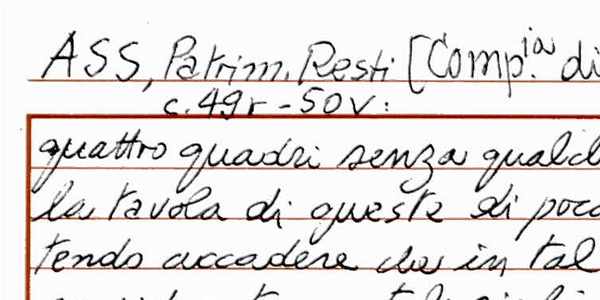 ASS, Patrim. Resti [Comp.ia di
c. 49r - 50v:
quattro quadri senza
la tavola di queste di
tendo accadere che in tal